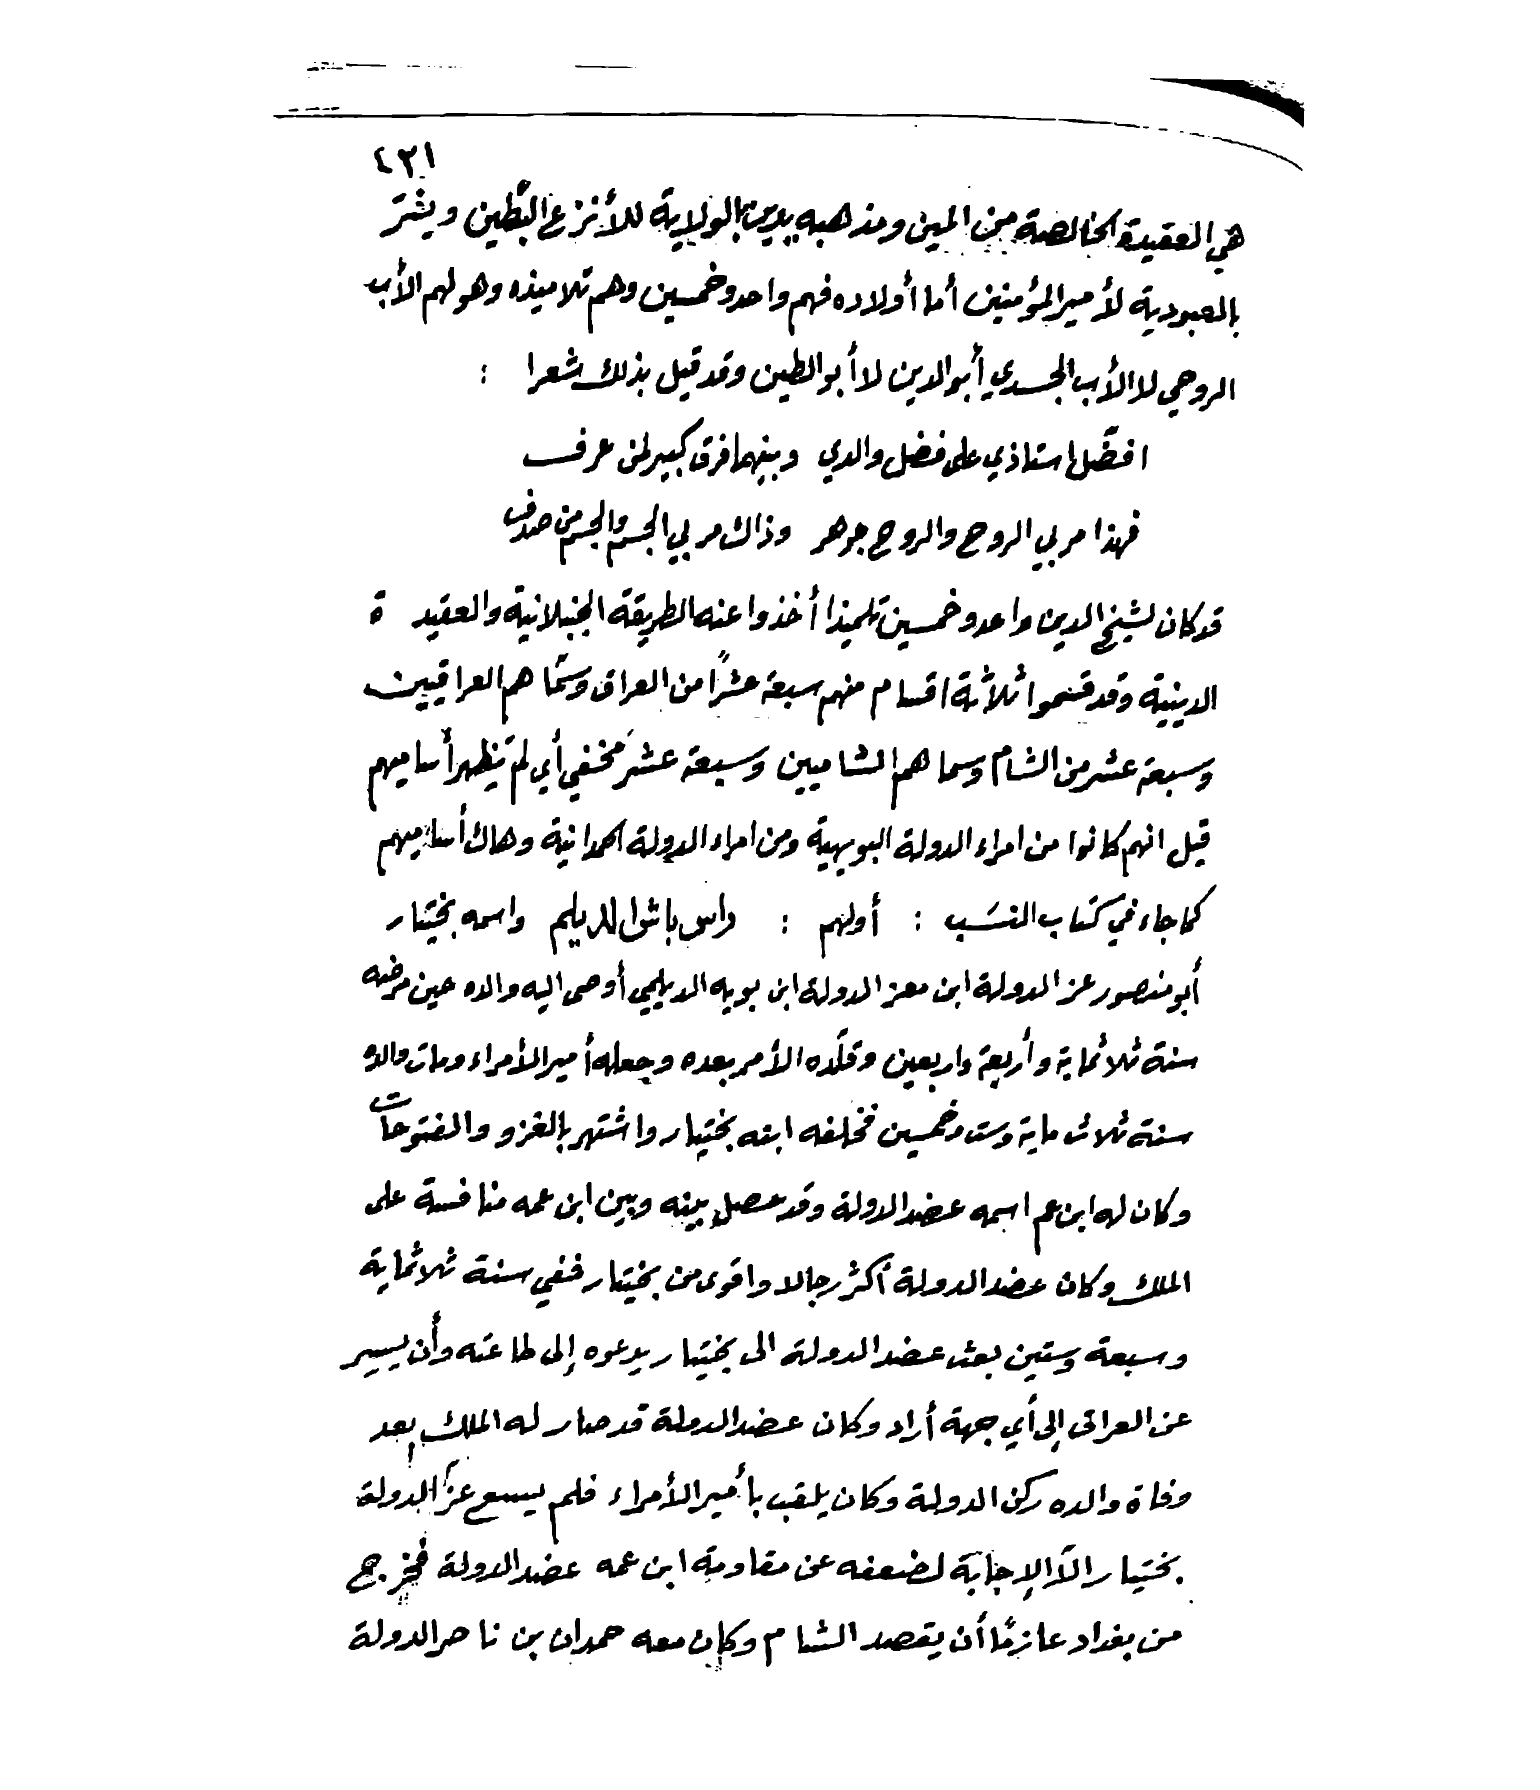 ٤٢١
هي العقيدة الخالصة من المين ومذهبه يدين بالولاية للأنزع البطين ويشر
بالعبودية لأمير المؤمنين أما أولاده فهم واحد وخمسين وهم تلاميذه وهو لهم الأب
الروحي لا الأب الجسدي أبو الدين لا أبو الطين وقد قيل بذلك شعرا :
افضّل استاذي على فضل والدي وبينهما فرق كبير لمن عرف
فهذا مربي الروح والروح جوهر وذاك مربي الجسم والجسم من صدف
قد كان لشيخ الدين واحد وخمسين تلميذا أخذوا عنه الطريقة الجنبلانية والعقيد ة
الدينية وقد قسموا ثلاثة اقسام منهم سبعة عشرًا من العراق وسمّا هم العراقيين
وسبعة عشر من الشام وسما هم الشاميين وسبعة عشرَ مخفي أي لم تظهر أساميهم
قيل انهم كانوا من امراء الدولة البويهية ومن امراء الدولة الحمدانية وهاك أساميهم
كما جاء في كتاب النسَب : أولهم : راس باش الديلم واسمه بختيار
أبو منصور عز الدولة ابن معز الدولة ابن بويه الديلمي أوصى اليه والده حين مرضه
سنة ثلاثماية وأربعة واربعين وقلّده الأمر بعده وجعله أمير الأمراء ومات والده
سنة ثلاث ماية وست وخمسين فخلفه ابنه بختيار واشتهر بالغزو والفتوحات
وكان له ابن عم اسمه عضد الدولة وقد حصل بينه وبين ابن عمه منافسة على
الملك وكان عضد الدولة أكثر رجالا واقوى من بختيار ففي سنة ثلاثماية
وسبعة وستين بعث عضد الدولة الى بختيار يدعوه إلى طاعته وأن يسير
عن العراق إلى أي جهة أراد وكان عضد الدولة قد صار له الملك بعد
وفاة والده ركن الدولة وكان يلقب بأمير الأمراء فلم يسع عزّ الدولة
بختيار الاّ الإجابة لضعفه عن مقاومة ابن عمه عضد الدولة فخرج
من بغداد عازمًا أن يقصد الشام وكان معه حمدان بن ناصر الدولة